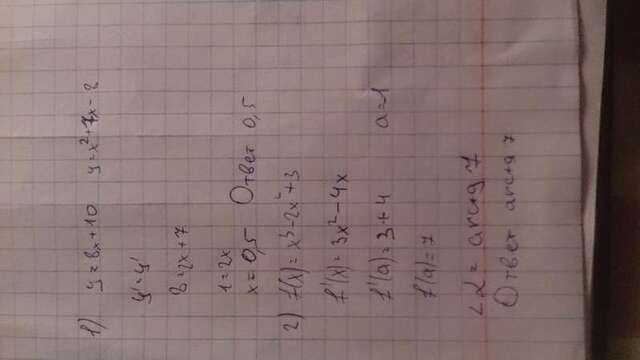 1) y = 8x + 10 y = x² + 7x - 8
y' = y'
8 = 2x + 7
1 = 2x
x = 0,5 Ответ 0,5
2) f(x) = x³ - 2x² + 3
f'(x) = 3x² - 4x
f'(a) = 3 + 4 a = 1
f'(a) = 7
∠α = arctg 7
Ответ arctg 7